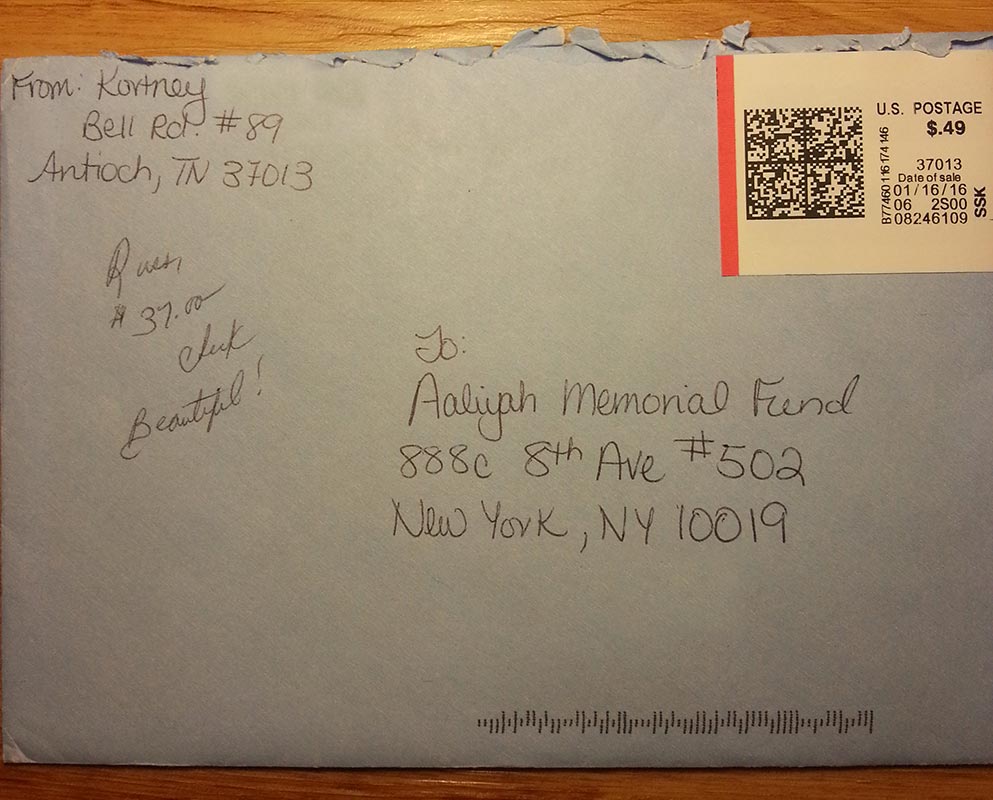 From: Kortney
Bell Rd. #89
Antioch, TN 37013
U.S. POSTAGE
$.49
37013
Date of sale
01/16/16
06 2S00
08246109
SSK
B77460116174146
$37.00
check
Beautiful!
To:
Aaliyah Memorial Fund
888c 8th Ave #502
New York, NY 10019